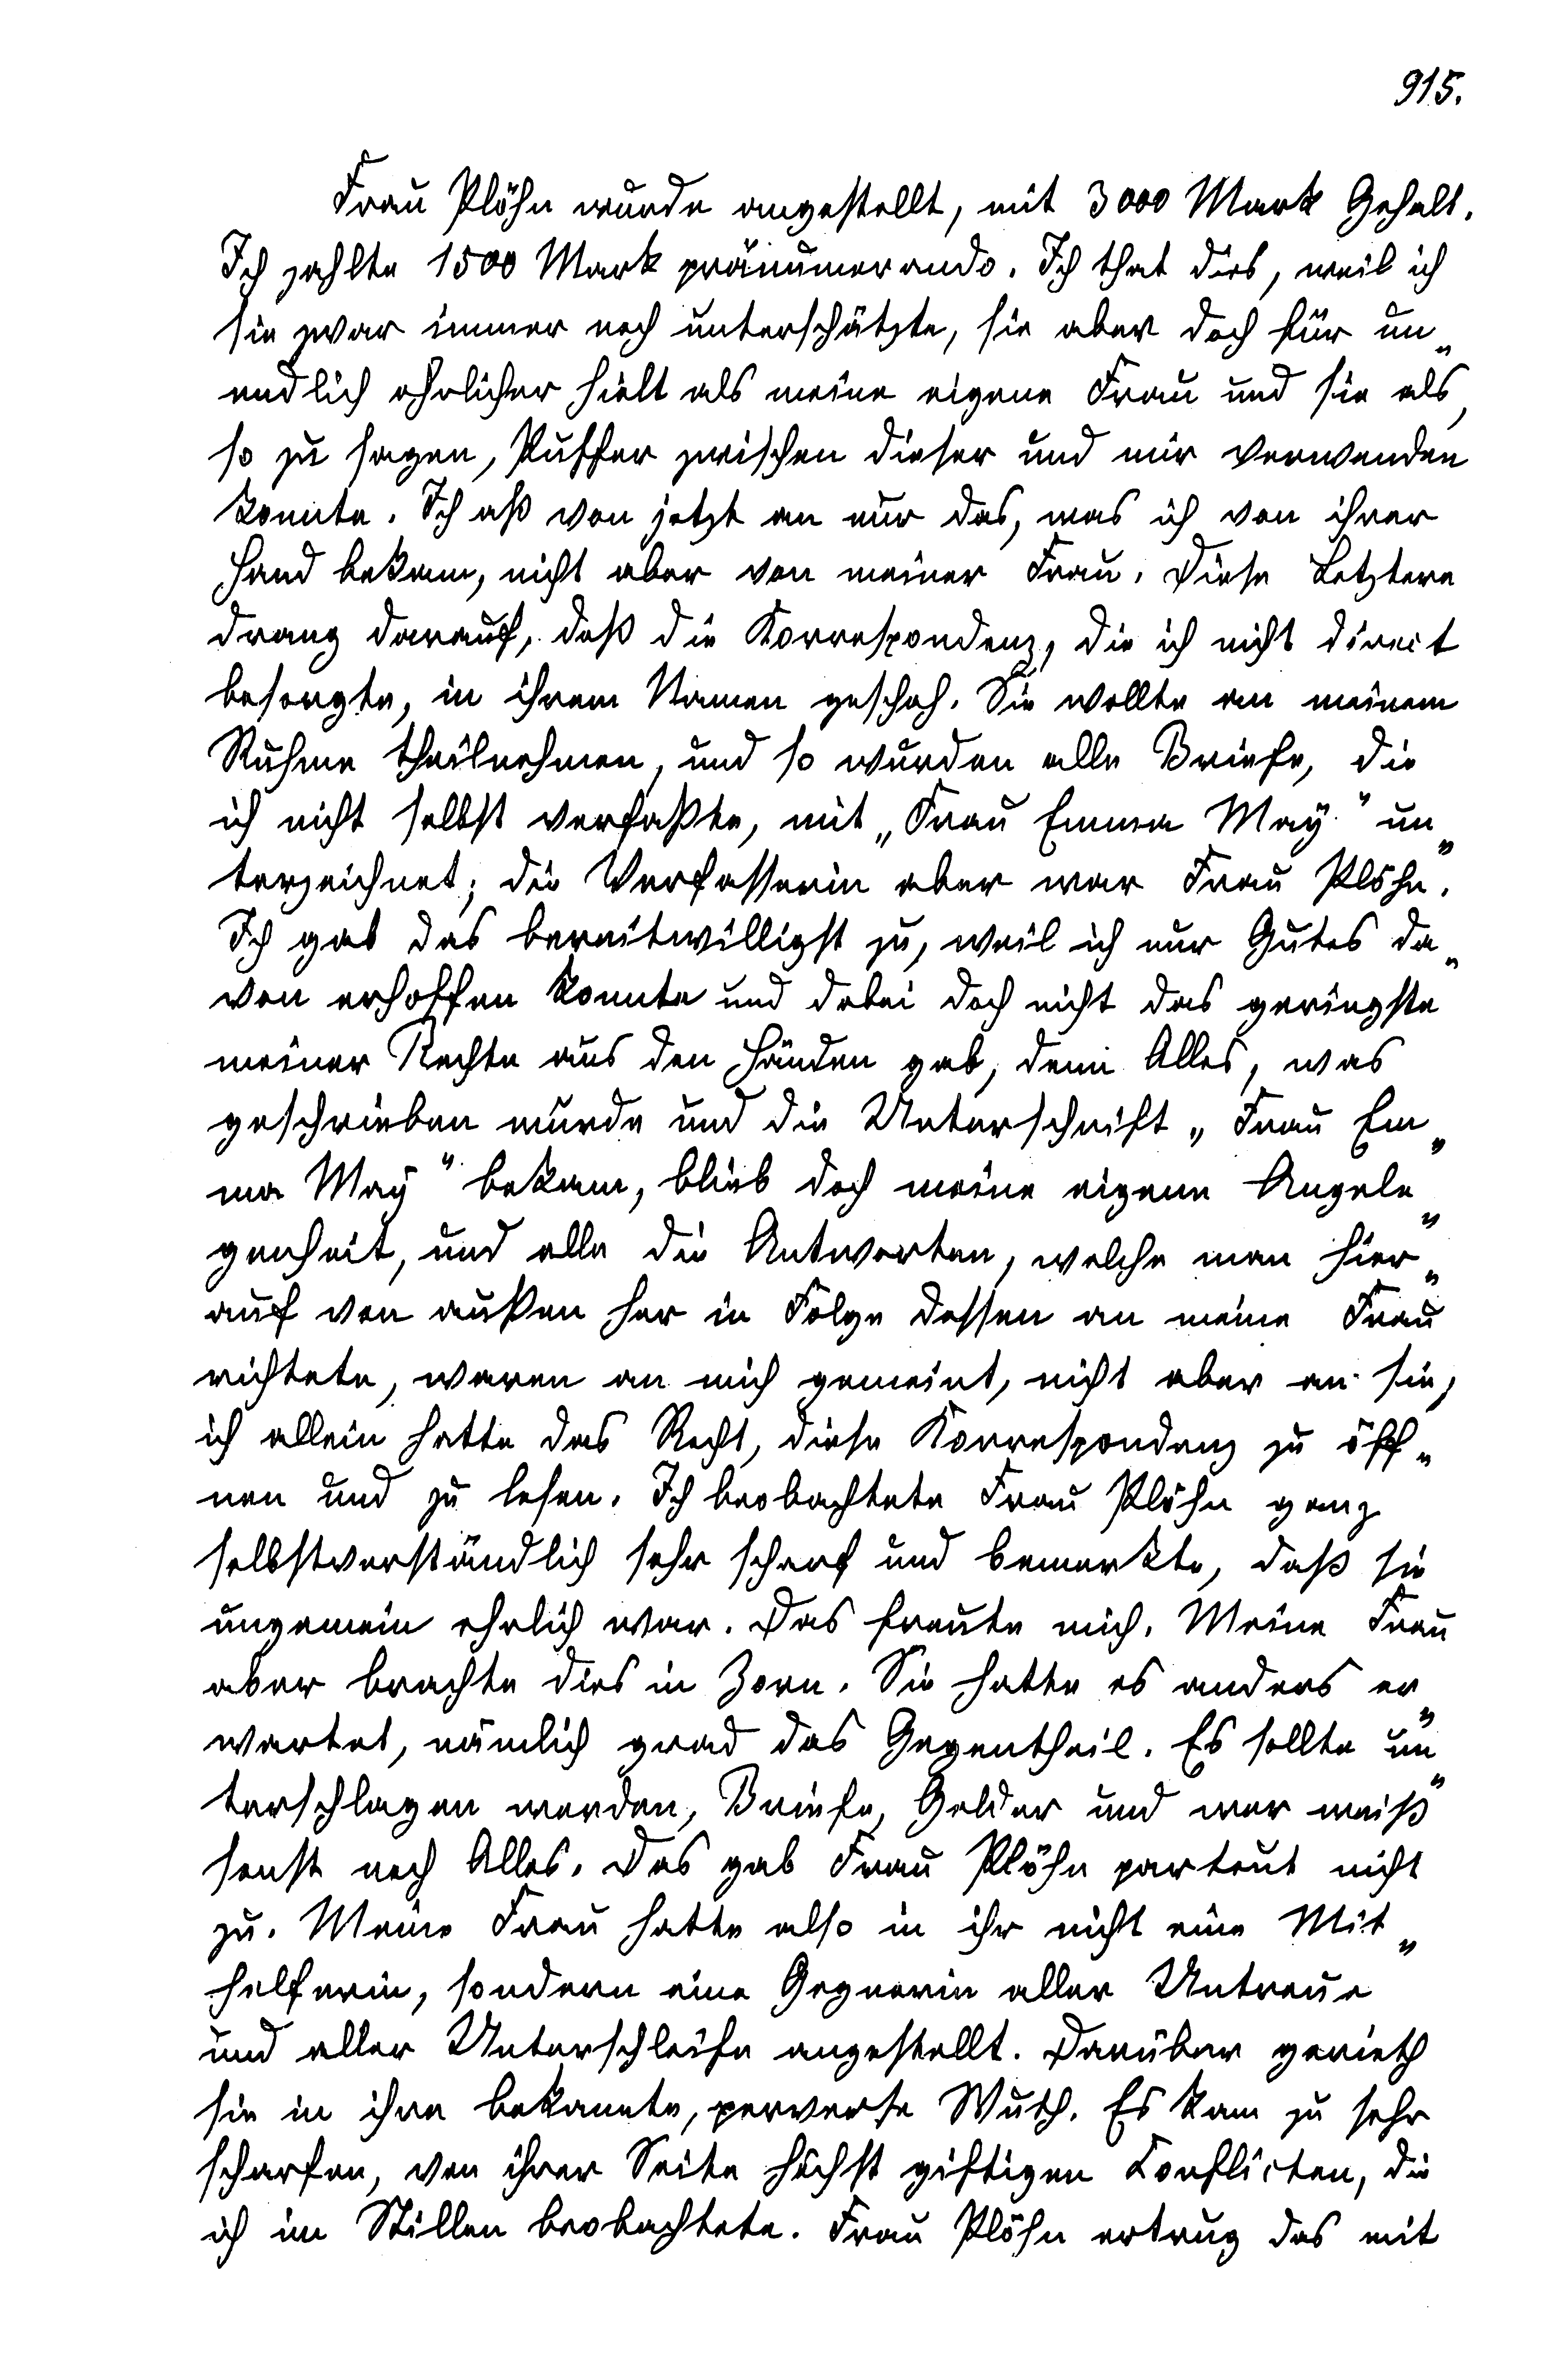 915.
Frau Plöhn wurde angestellt, mit 3000 Mark Gehalt.
Ich zahlte 1500 Mark pränumerando. Ich that dies, weil ich
sie zwar immer noch unterschätzte, sie aber doch für un„
endlich ehrlicher hielt als meine eigene Frau und sie als,
so zu sagen, Puffer zwischen dieser und mir verwenden
konnte. Ich aß von jetzt an nur das, was ich von ihrer
Hand bekam, nicht aber von meiner Frau. Diese Letztere
drang darauf, daß die Korrespondenz, die ich nicht direct
besorgte, in ihrem Namen geschah. Sie wollte an meinem
Ruhme theilnehmen, und so wurden alle Briefe, die
ich nicht selbst verfaßte, mit „Frau Emma May" un„
terzeichnet; die Verfasserin aber war Frau Plöhn.
Ich gab das bereitwilligst zu, weil ich nur Gutes da„
von erhoffen konnte und dabei doch nicht das geringste
meiner Rechte aus den Händen gab, denn Alles, was
geschrieben wurde und die Unterschrift „Frau Em„
ma May" bekam, blieb doch meine eigene Angele„
genheit, und alle die Antworten, welche man hier„
auf von außen her in Folge dessen an meine Frau
richtete, waren an mich gemeint, nicht aber an sie;
ich allein hatte das Recht, diese Korrespondenz zu öff„
nen und zu lesen. Ich beobachtete Frau Plöhn ganz
selbstverständlich sehr scharf und bemerkte, daß sie
ungemein ehrlich war. Das freute mich. Meine Frau
aber brachte dies in Zorn. Sie hatte es anders er„
wartet, nämlich grad das Gegentheil. Es sollte un„
terschlagen werden, Briefe, Gelder und wer weiß
sonst noch Alles. Das gab Frau Plöhn partout nicht
zu. Meine Frau hatte also in ihr nicht eine Mit„
helferin, sondern eine Gegnerin aller Untreue
und aller Unterschleife angestellt. Darüber gerieth
sie in ihre bekannte, perverse Wuth. Es kam zu sehr
scharfen, von ihrer Seite höchst giftigen Conflicten, die
ich im Stillen beobachtete. Frau Plöhn ertrug das mit